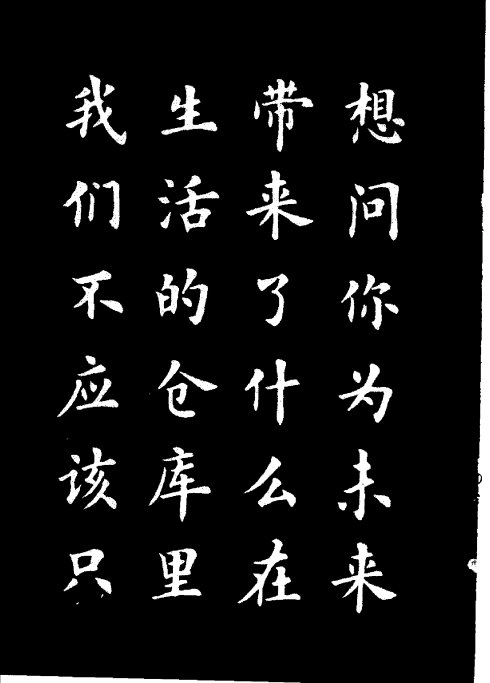 想问你为未来
带来了什么在
生活的仓库里
我们不应该只